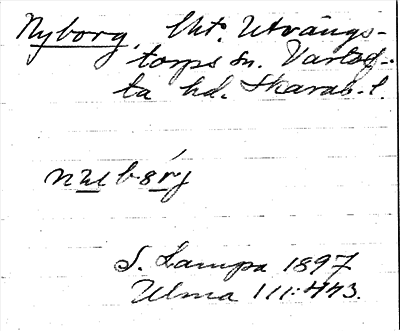 Nyborg, lht. Utvängs-
torps sn. Vartof-
ta hd. Skarab. l.
S. Lampa 1897
Ulma 111:443.